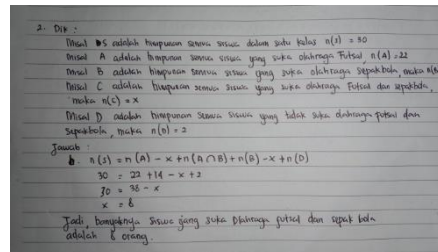 2. Dik :
Misal S adalah himpunan semua siswa dalam satu kelas n(s) = 30
Misal A adalah himpunan semua siswa yang suka olahraga Futsal, n(A) = 22
Misal B adalah himpunan semua siswa yang suka olahraga sepakbola, maka n(B
Misal C adalah himpunan semua siswa yang suka olahraga Futsal dan sepakbola,
maka n(c) = x
Misal D adalah himpunan semua siswa yang tidak suka olahraga futsal dan
sepakbola, maka n(D) = 2
Jawab :
b. n(s) = n(A) - x + n(A ∩ B) + n(B) - x + n(D)
30 = 22 + 14 - x + 2
30 = 38 - x
x = 8
Jadi, banyaknya siswa yang suka olahraga futsal dan sepak bola
adalah 8 orang.